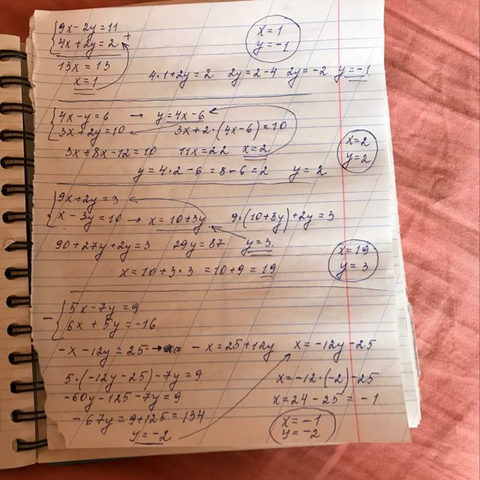 9x-2y=11
4x+2y=2 +
13x=13
x=1
4·1+2y=2 2y=2-4 2y=-2 y=-1
x=1
y=-1
4x-y=6 → y=4x-6
3x+2y=10 3x+2·(4x-6)=10
3x+8x-12=10 11x=22 x=2
y=4·2-6=8-6=2 y=2
x=2
y=2
9x+2y=3
x-3y=10 → x=10+3y 9·(10+3y)+2y=3
90+27y+2y=3 29y=87 y=3
x=10+3·3=10+9=19
x=19
y=3
- 5x-7y=9
6x+5y=-16
-x-12y=25 → -x=25+12y x=-12y-25
5·(-12y-25)-7y=9 x=-12·(-2)-25
-60y-125-7y=9 x=24-25=-1
-67y=9+125=134
y=-2
x=-1
y=-2